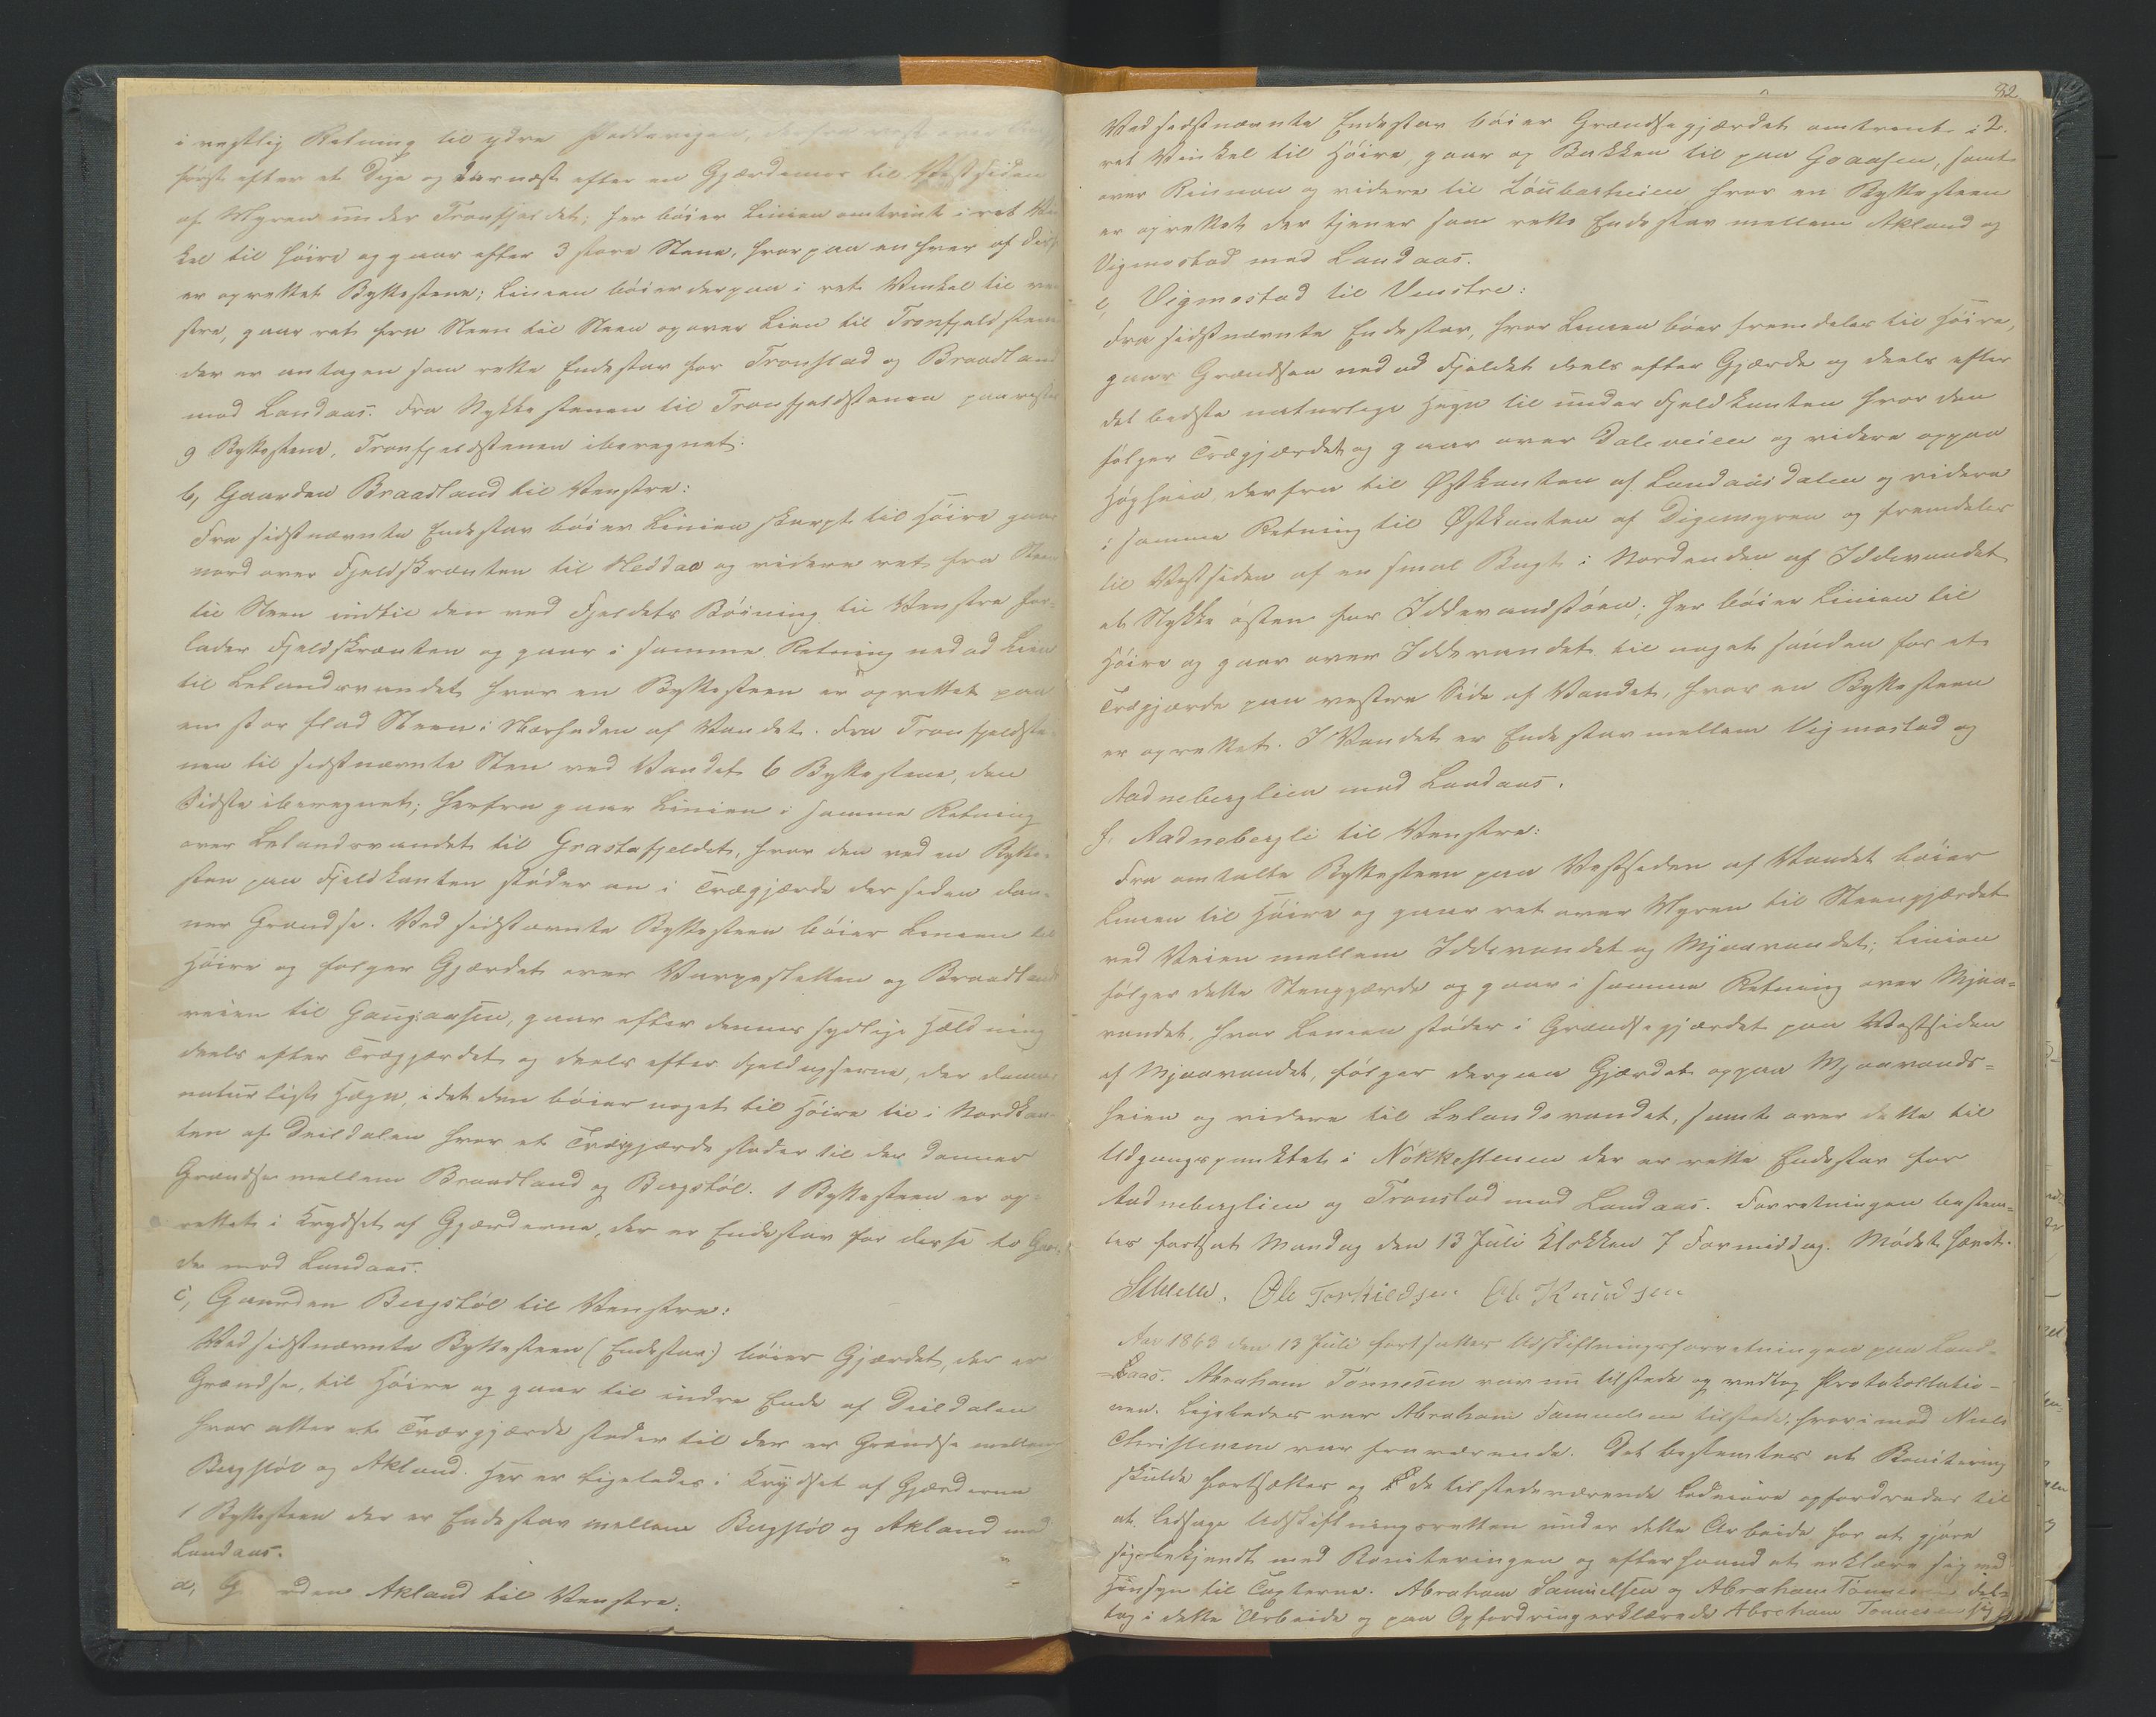 i vestlig Retning til ydre
først efter et Dige og dernæst efter en Gjærdemor til Vestsiden
af Myren under Tronfjeldet; her böier Linien omtrint i ret Vin
kel til höire og gaar efter 3 store Stene, hvorpaa en hver af disse
er oprettet Byttestene; Linien böier derpaa i ret Vinkel til ven
stre, gaar ret fra Steen til Steen op over Lien til Tronfjeldstenen
der er antagen som rette Endestav for Tronstad og Braadland
mod Landaas. Fra Nykkestenen til Tronfjeldstenen
9 Byttestene, Tronfjeldstenen iberegnet.
b, Gaarden Braadland til Venstre:
Fra sidstnævnte Endestav böier Linien skarpt til Höire gaar
nord over Fjeldskrænten til Heddao og videre ret fra Steen
til Steen indtil den ved Fjeldets Böining til Venstre for-
lader Fjeldskrænten og gaar i samme Retning ned ad Lien
til Lelandsvandet hvor en Byttesteen er oprettet paa
en stor flad Steen i Nærheden af Vandet. Fra Tronfjeldste-
nen til sidstnævnte Sten ved Vandet 6 Byttestene, den
Sidste iberegnet; herfra gaar Linien i samme Retning
over Lelandsvandet til Grastafjeldet, hvor den ved en Bytte-
sten paa Fjeldkanten støder an i Trægjærde der siden dan-
ner Grændse. Ved sidstævnte Byttesteen böier Linien til
Höire og følger Gjærdet over Varpesletten og Braadlands
veien til Gaugaasen, gaar efter dennes sydlige Hældning
deels efter Trægjærdet og deels efter Fjeldupserne, der danner
naturligt Hegn, idet den böier noget til Höire til i Nordkan-
ten af Deildalen hvor et Tværgjærde støder til der danner
Grændse mellem Braadland og Bergstöl. 1 Byttesteen er op-
rettet i Krydset af Gjærderne, der er Endestav for disse to Gaar
de mod Landaas.
c, Gaarden Bergstöl til Venstre:
Ved sidstnævnte Byttesteen (Endestav) böier Gjærdet, der er
Grændse, til Höire og gaar til indre Ende af Deildalen
hvor atter et Tværgjærde støder til der er Grændse mellem
Bergstöl og Akland. Her er ligeledes i Krydset af Gjærderne
1 Byttesteen der er Endestav mellem Bergstöl og Akland mod
Landaas.
d, G rden Akland til Venstre:
82
Ved sidstnævnte Endestav böier Grændsegjærdet omtrent i 2.
ret Vinkel til Höire, gaar op Bakken til paa Graasen, samt
over Rinnen og videre til Löubarheien hvor en Byttesteen
er oprettet der tjener som rette Endestav mellem Akland og
Vigmostad med Landaas.
e, Vigmostad til Venstre:
Fra sidstnævnte Endestav, hvor Linien böier fremdeles til Höire,
gaar Grændsen ned ad Fjeldet deels efter Gjærde og deels efter
det bedste naturlige Hegn til under Fjeldkanten hvor den
følger Trægjærdet og gaar over Daleveien og videre oppaa
Högheia, derfra til Østkanten af Landaasdalen og videre
i samme Retning til Østkanten af Digemyren og fremdeles
til Vestsiden af en smal Bugt i Nordenden af Iddevandet
et Stykke østen for Iddevandstöen; her böier Linien til
Höire og gaar over Iddevandet til noget sönden for et
Trægjærde paa vestre Side af Vandet, hvor en Byttesteen
er oprettet. I Vandet er Endestav mellem Vigmostad og
Aadneberglien mod Landaas.
f. Aadnebergli til Venstre:
Fra omtalte Byttesteen paa Vestsiden af Vandet böier
Linien til Höire og gaar ret over Myren til Steengjærdet
ved Veien mellem Iddevandet og Mjaavandet; Linien
følger dette Stengjærde og gaar i samme Retning over Mjaa-
vandet, hvor Linien støder i Grændsegjærdet paa Vestsiden
af Mjaavandet, følger derpaa Gjærdet oppaa Mjaavands-
heien og videre til Lelandsvandet, samt over dette til
Udgangspunktet i Nökkestenen der er rette Endestav for
Aadneberglien og Tronstad mod Landaas. Forretningen bestem-
tes fortsat Mandag den 13 Juli Klokken 7 Formiddag. Mödet hævet.
Ole Torkildsen Ole Knudsen
Aar 1863 den 13 Juli fortsattes Udskiftningsforretningen paa Land-
aas. Abraham Tönnesen var nu tilstede og vedtog Protokollatio-
nen. Ligeledes var Abraham Samuelsen tilstede, hvorimod Niels
Christensen var fraværende. Det bestemtes at Bonitering
skulde fortsættes og de tilstedeværende Lodeiere opfordredes til
at ledsage Udskiftningsretten under dette Arbeide for at gjøre
sig bekjendt med Boniteringen og efterhaand at erklære sig med
Hensyn til Taxterne. Abraham Samuelsen og Abraham Tönnesen del-
tog i dette Arbeide og paa Opfordring erklærede Abraham Tönnesen sig